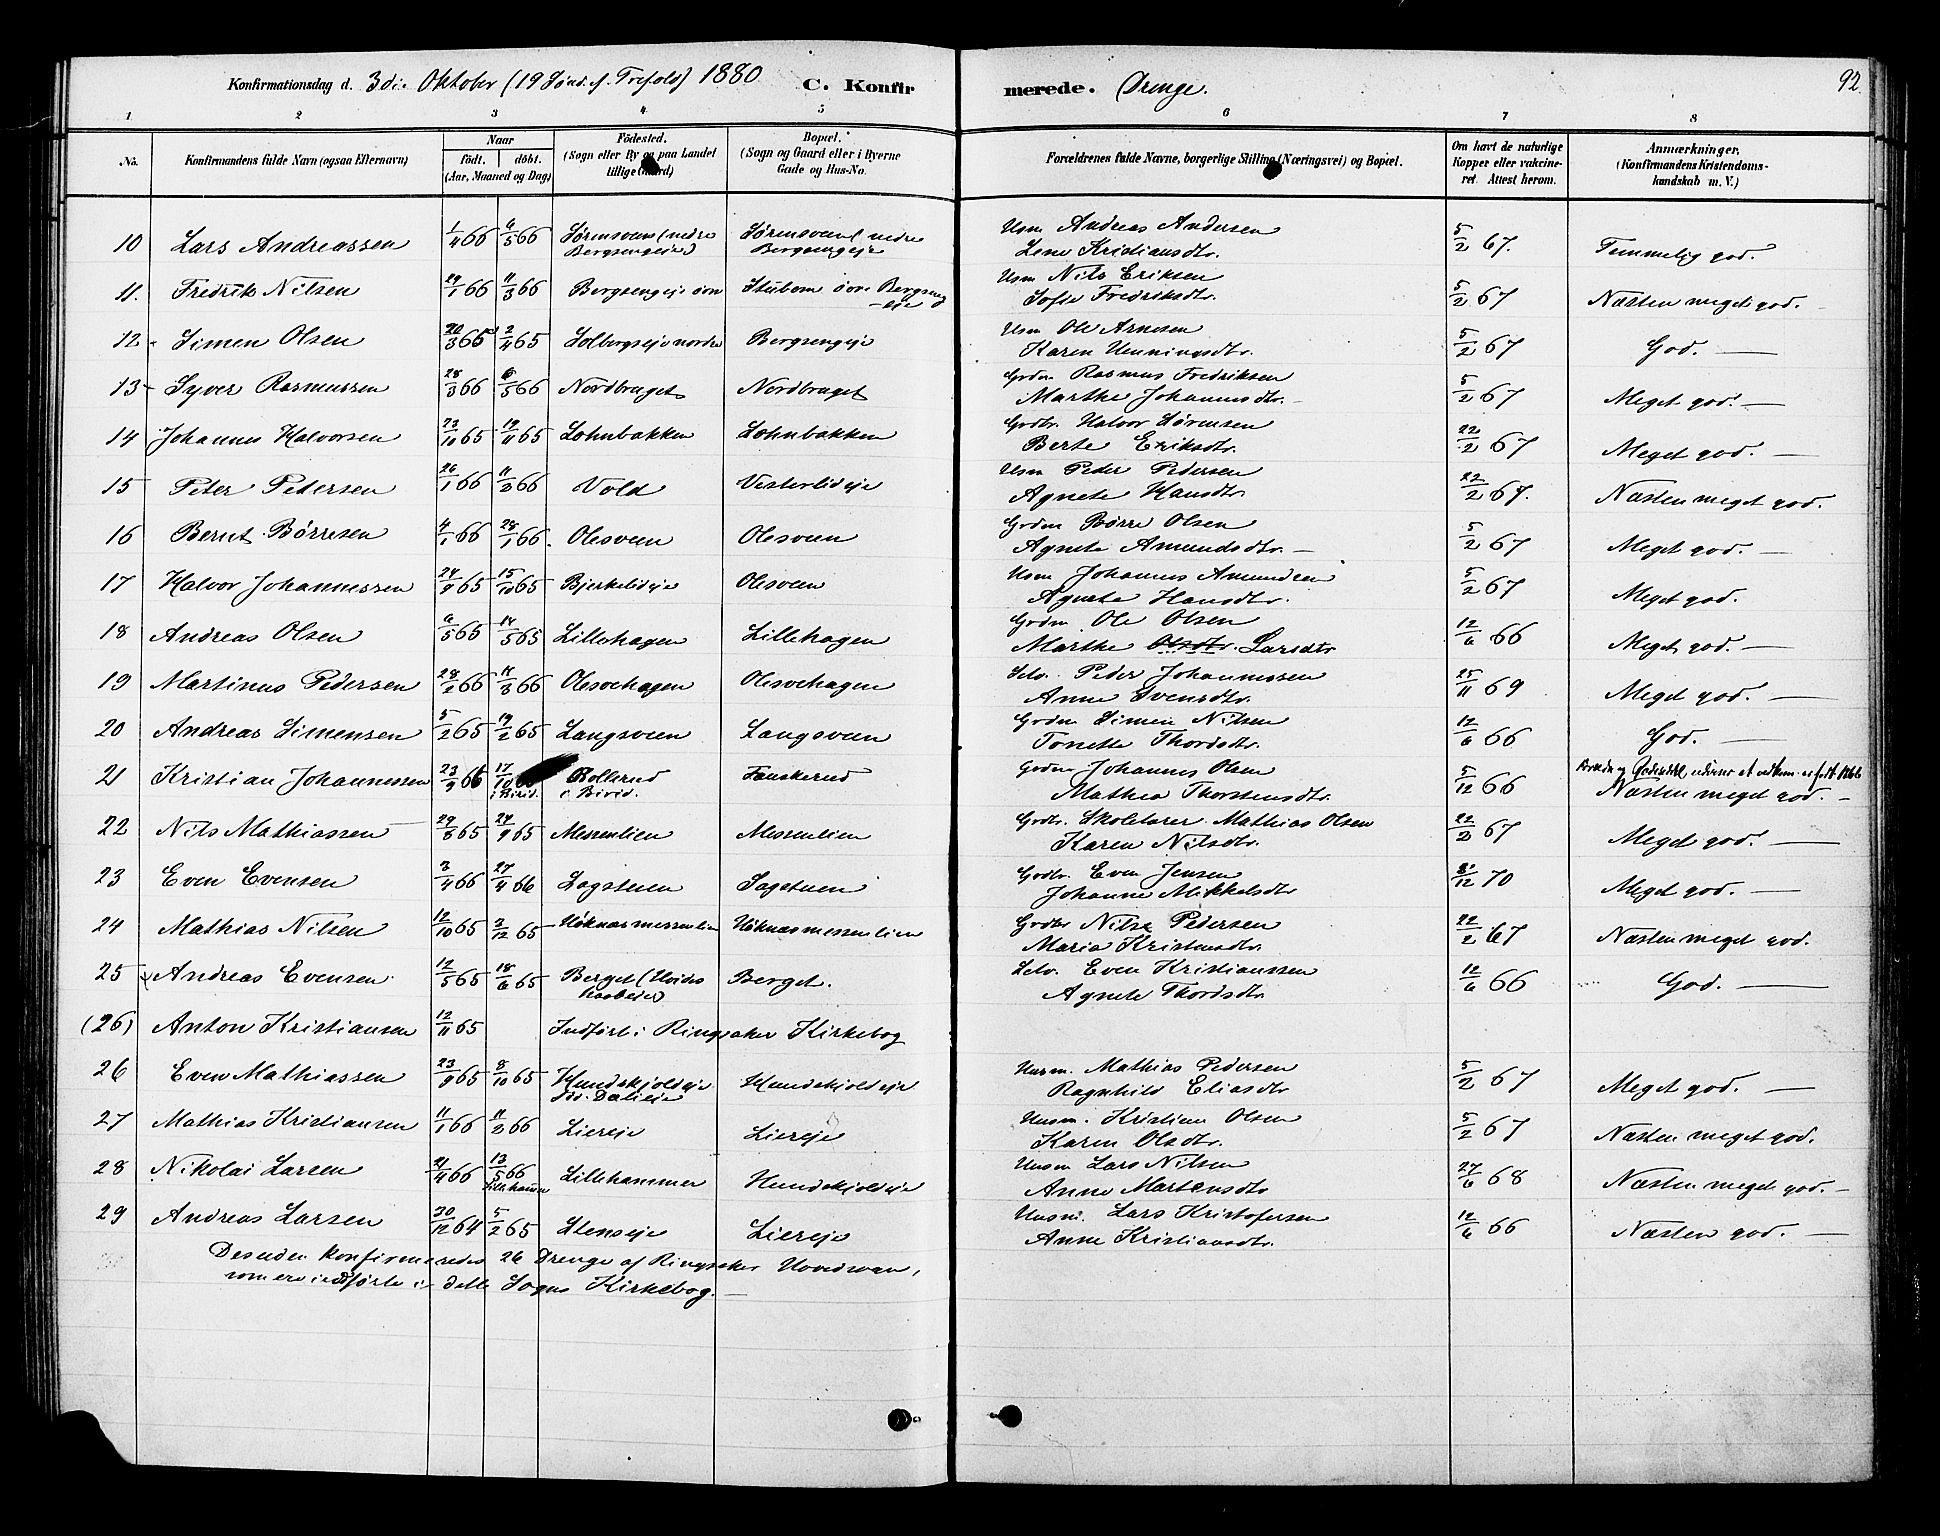 Konfirmationsdag d. 3die Oktober (19 Sønd. f. Trefold) 1880 C. Konfirmerede. Drenge. 92.
1 2 3 4 5 6 7 8
No. Konfirmandens fulde Navn (ogsaa Efternavn) Naar födt. döbt. (Aar, Maaned og Dag) Födested. (Sogn eller By og paa Landet tillige Gaard) Bopæl. (Sogn og Gaard eller i Byerne Gade og Hus-No. Forældrenes fulde Navne, borgerlige Stilling (Næringsvei) og Bopæl. Om havt de naturlige Kopper eller vakcineret. Attest herom. Anmærkninger. (Konfirmandens Kristendomskundskab m. V.)
10 Lars Andreassen 1/4 66 6/5 66 Sørensveen (nedre Bergsengeie) Sørensveen (nedre Bergsengeje Usm Andreas Andersen Lene Kristiansdtr. 5/2 67. Temmelig god.
11. Fredrik Nilsen 29/1 66 11/3 66 Bergsengeje övre Stubom övre Bergsengeje Usm Nils Eriksen Sofie Fredriksdtr. 5/2 67 Næsten meget god.
12 Simen Olsen 20/3 65 2/4 65 Solbergseje nordre Bergsengeje Usm Ole Arnesen Karen Henningsdtr. 5/2 67 God.
13 Syver Rasmussen 28/3 66 6/5 66 Nordbraget Nordbraget Grdm. Rasmus Fredriksen Marthe Johannesdtr. 5/2 67 Meget god.
14 Johannes Halvorsen 23/10 65 19/11 65 Lohnbakken Lohnbakken Grdbr. Halvor Sørensen Berte Eriksdtr. 22/2 67 Meget god.
15 Peter Pedersen 26/1 66 11/3 66 Vold Vesterlieje Usm Peder Pedersen Agnete Hansdtr. 22/2 67. Næsten meget god.
16 Bernt Börresen 4/1 66 28/1 66. Olesveen Olesveen Grdm Börre Olsen Agnete Amundsdtr. 5/2 67 Meget god.
17 Halvor Johannessen 24/9 65 15/10 65 Bjerkelieje Olesveen Usm Johannes Amundsen Agnete Hansdtr. 5/2 67 Meget god.
18 Andreas Olsen 6/5 65 14/5 65 Lillehagen Lillehagen Grdm Ole Olsen Marthe Olsdtr. Larsdtr 12/6 66 Meget god.
19 Martinus Pedersen 28/2 66 11/3 66 Olesvehagen Olesvehagen Selv. Peder Johannessen Anne Svensdtr. 25/11 69 Meget god.
20 Andreas Simensen 5/2 65 19/2 65 Langsveen Langsveen Grdm Simen Nilsen Tonette Thordsdtr. 12/6 66 God.
21 Kristian Johannessen 23/9 66 17/10 i Birid. Rollerud i Birid. Fauskerud Grdm Johannes Olsen Mathea Thorstensdtr. 5/12 66 Næsten meget god.
22 Nils Mathiassen 29/8 65 24/9 65 Messenlien Messenlien Grdbr. Skolelærer Mathias Olsen Karen Nilsdtr. 22/2 67 Meget god.
23 Even Evensen 3/4 66 27/4 66 Sagstuen Sagstuen Grdbr. Even Jensen Johanne Mikkelsdtr /12 70 Meget god.
24 Mathias Nilsen 12/10 65 3/12 65 Höknasmessenlien Höknasmessenlien Grdbr Nils Pedersen Maria Kristensdtr. 22/2 67 Næsten meget god.
25 Andreas Evensen 12/5 65 18/6 65 Berget Berget. Selv. Even Kristianssen Agnete Thordsdtr. 12/6 66 God.
(26) Anton Kristiansen 12/11 65 Indført i Ringsaker Kirkebog
26 Even Mathiassen 23/9 65 8/10 65 Hundskjoldeje Hundskjoldeje Husm. Mathias Pedersen Ragnhild Eliasdtr 5/2 67 Meget god.
27 Mathias Kristiansen 11/1 66 11/2 66 Liereje Liereje Husm. Kristian Olsen Karen Olsdtr. 5/2 67 Næsten meget god.
28 Nikolai Larsen 21/4 66 13/5 66 Lillehammer Lillehammer Hundskjoldeje Husm Lars Nilsen Anne Martensdtr 27/6 68 Næsten meget god.
29 Andreas Larsen 30/12 64 5/2 65 Stenseje Liereje Husm. Lars Kristofersen Anne Kristiansdtr. 12/6 66 Næsten god.
Desuden konfirmeredes 26 Drenge af Ringsaker Hovedsogn,
som ere indførte i dette Sogns Kirkebog.